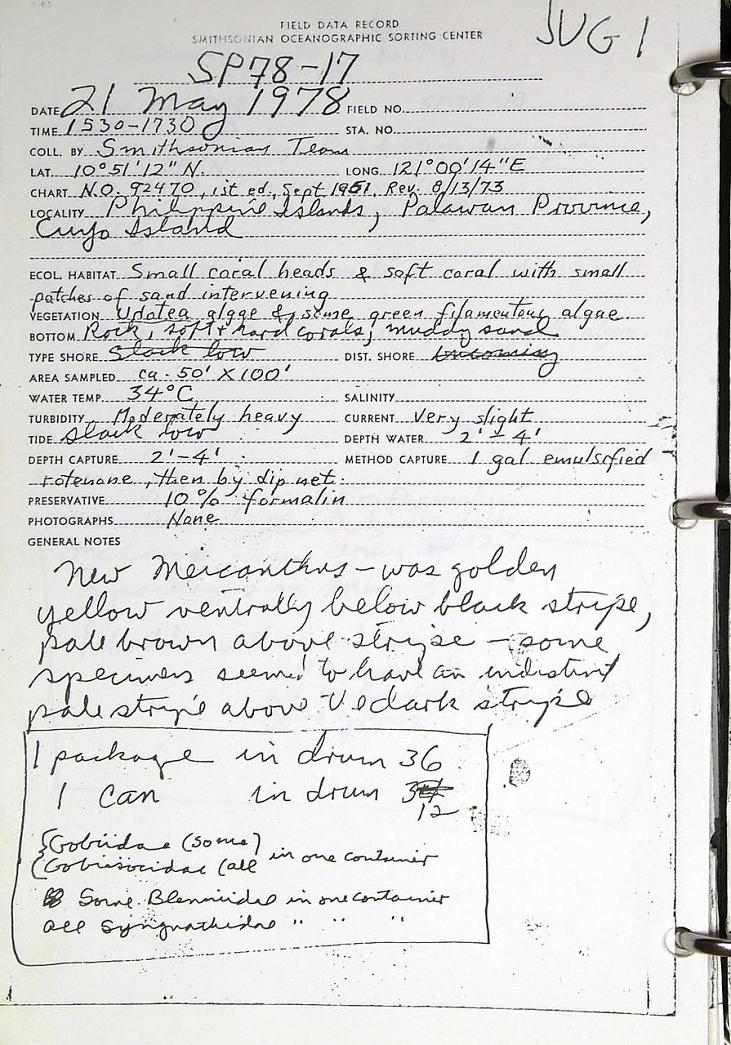 JUG 1
FIELD DATA RECORD
SMITHSONIAN OCEANOGRAPHIC SORTING CENTER
SP78-17
DATE 21 May 1978 FIELD NO.
TIME 1530-1730 STA. NO.
COLL. BY Smithsonian Team
LAT. 10°51'12" N. LONG. 121°00'14"E
CHART N.O. 92470, 1st ed., Sept 1951, Rev. 8/13/73
LOCALITY Philippine Islands, Palawan Province,
Cuyo Island
ECOL. HABITAT Small coral heads & soft coral with small
patches of sand intervening
VEGETATION Udotea algae & some green filamentous algae
BOTTOM Rock, soft + hard corals, muddy sand
TYPE SHORE Slack low DIST. SHORE Incoming
AREA SAMPLED ca. 50' X 100'
WATER TEMP. 34°C SALINITY
TURBIDITY Moderately heavy CURRENT Very slight
TIDE slack low DEPTH WATER 2'-4'
DEPTH CAPTURE 2'-4' METHOD CAPTURE 1 gal emulsified
rotenone, then by dip net.
PRESERVATIVE 10% formalin
PHOTOGRAPHS None
GENERAL NOTES
New Meiacanthus - was golden
yellow ventrally below black stripe,
pale brown above stripe - some
specimens seemed to have an indistinct
pale stripe above the dark stripe
1 package in drum 36
1 can in drum
12
{Gobiidae (some)
{Gobiesocidae (all in one container
Some Blenniidae in one container
all Syngnathidae " " "